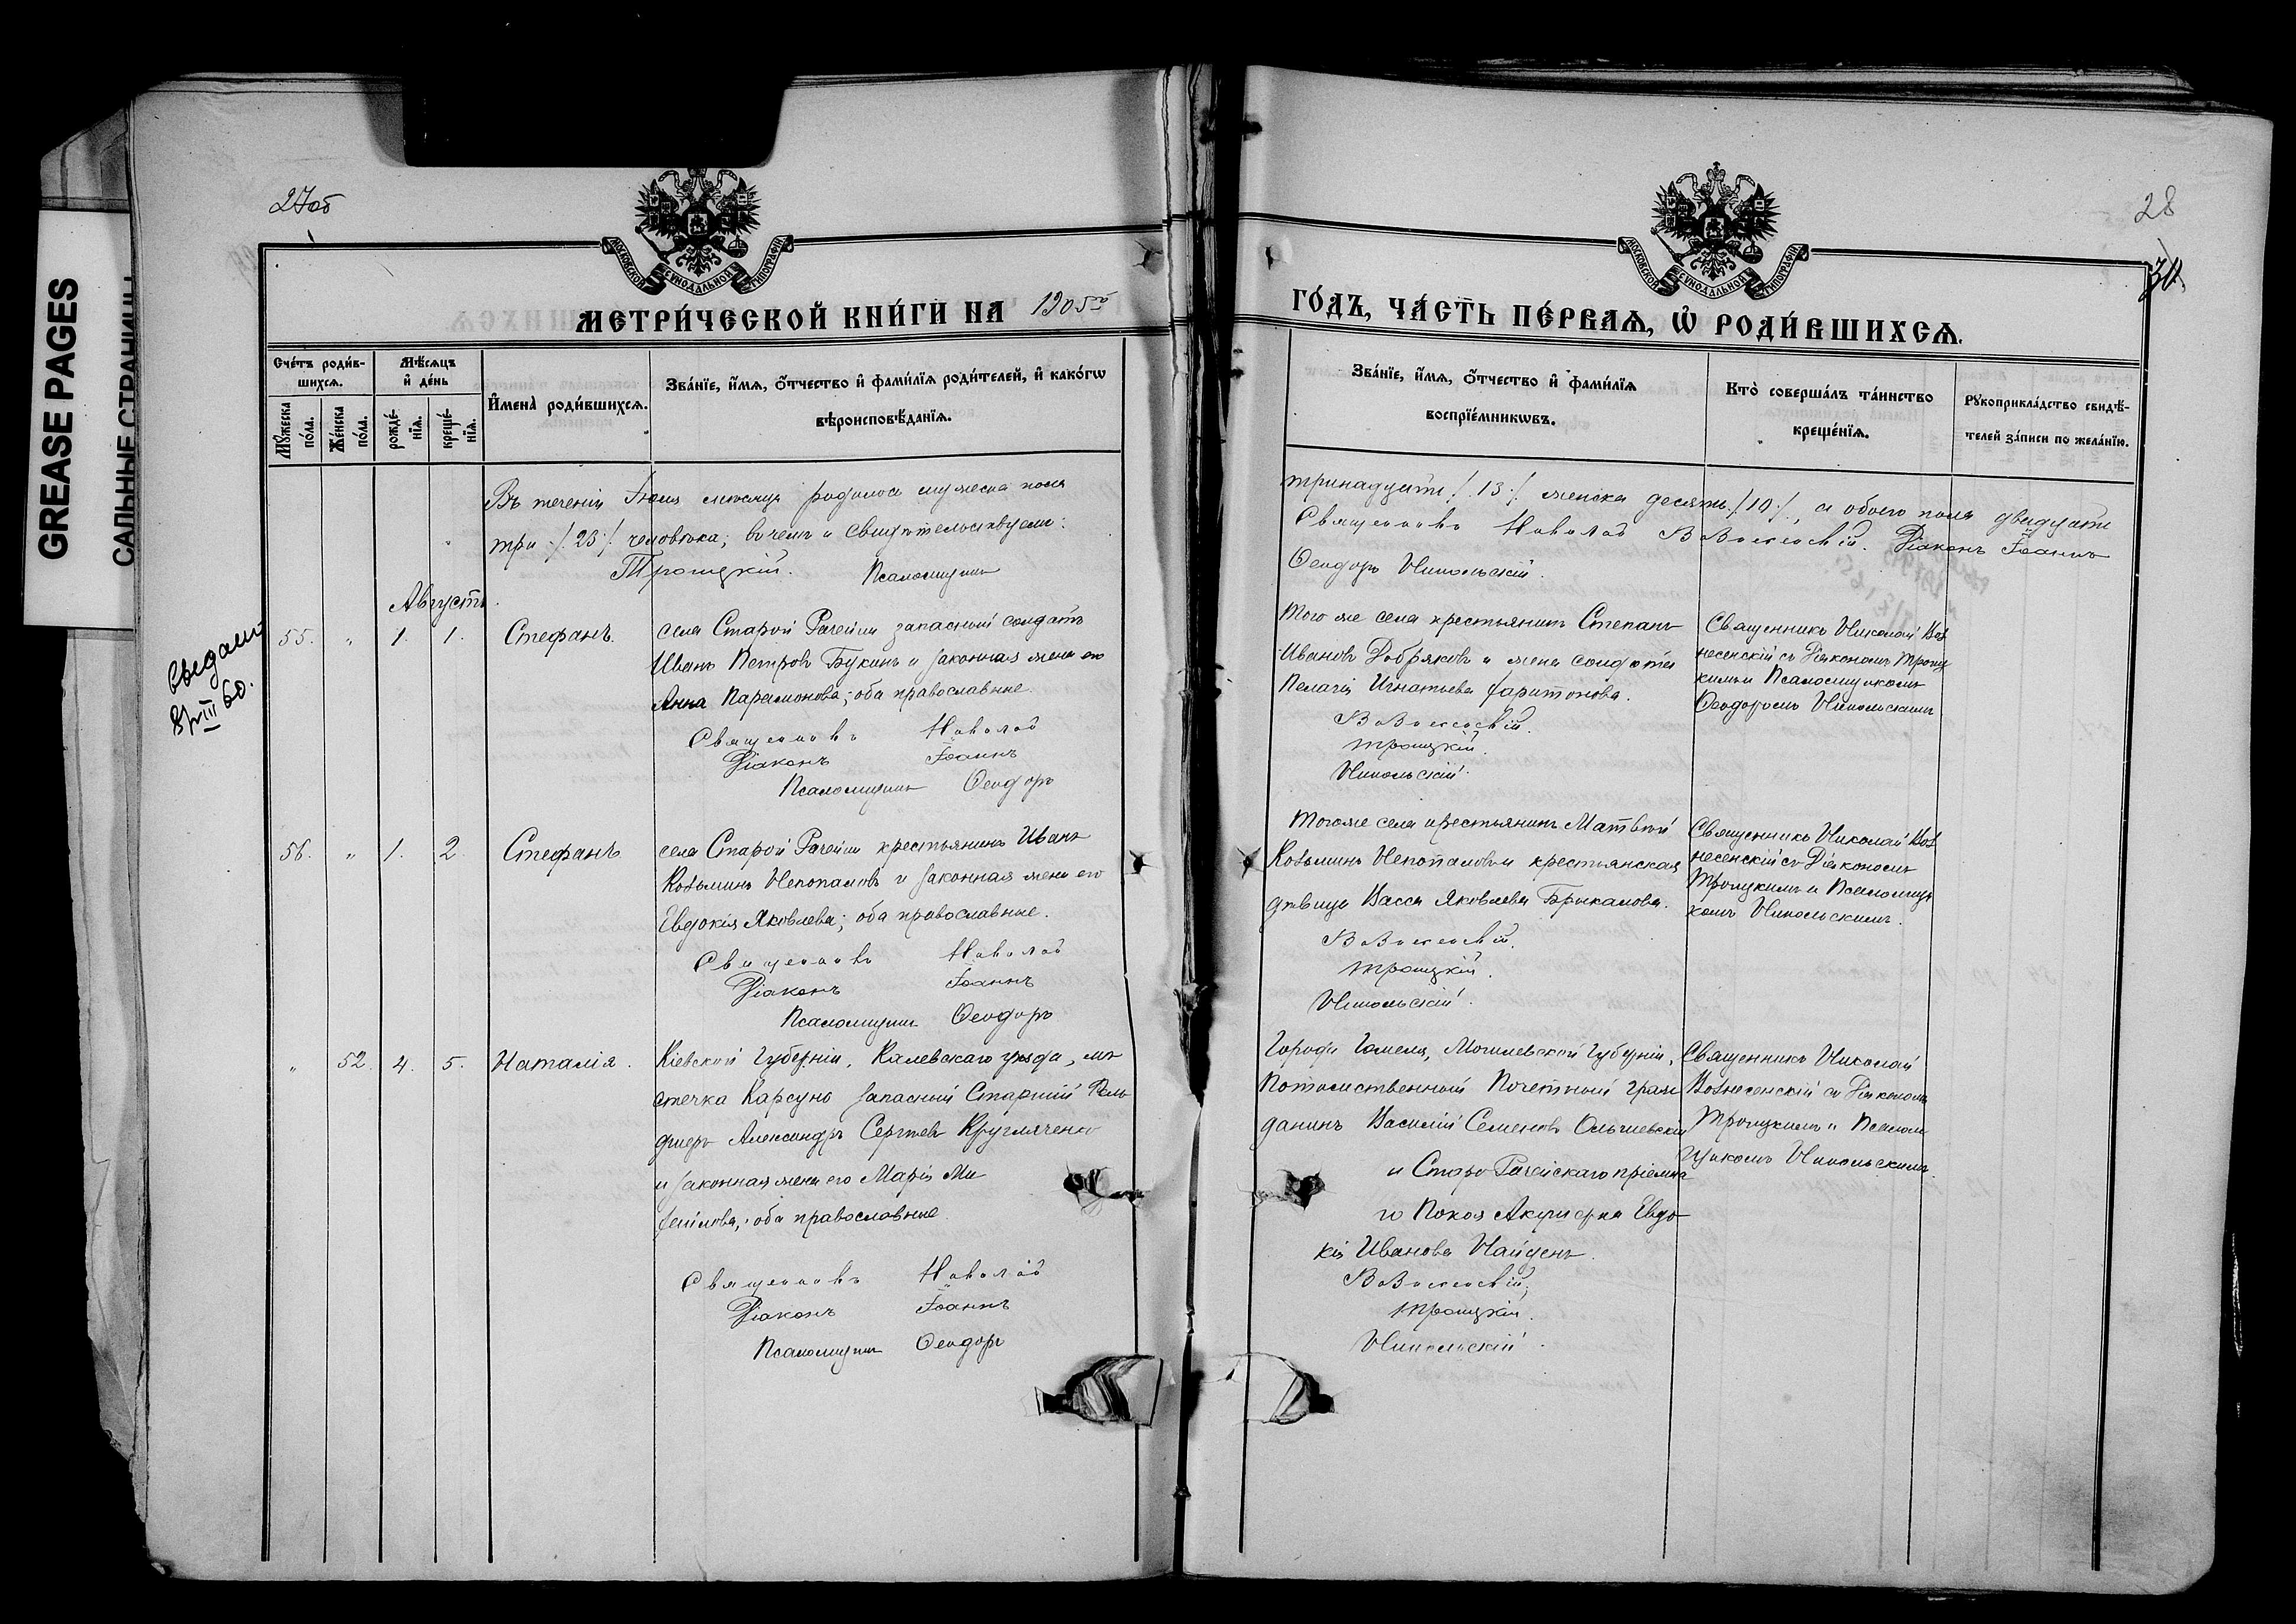 GREASE PAGES
САЛЬНЫЕ СТРАНИЦЫ
27об
МОСКОВСКОЙ СѴНОДАЛЬНОЙ ТИПОГРАФІИ
МЕТРИ́ЧЕСКОЙ КНИ́ГИ НА 1905го
Сче́тъ роди́в-
шихсѧ.
Мѣ́сѧцъ
и҆ де́нь
И҆мена̀ роди́вшихсѧ.
Зва́нїе, и҆́мѧ, ѻ҆́тчество и҆ фами́лїѧ роди́телей, и҆ како́гѡ
вѣроисповѣ́данїѧ.
Мꙋ́жеска
по́ла.
Же́нска
по́ла.
рожде́-
нїѧ.
креще́-
нїѧ.
Въ теченіи Іюля мѣсяца родилось мужеска пола
три /.23./. человѣка; въ чемъ и свидѣтельствуемъ:
Троицкій. Псаломщикъ
Августъ.
55. " 1. 1. Стефанъ.
села Старой Рачейки запасный солдатъ
Иванъ Петровъ Букинъ и законная жена его
Анна Парамонова; оба православные.
Священникъ Николай
Діаконъ Іоаннъ
Псаломщикъ Ѳеодоръ
56. " 1. 2. Стефанъ.
села Старой Рачейки крестьянинъ Иванъ
Козьминъ Непопаловъ и законная жена его
Евдокія Яковлева; оба православные.
Священникъ Николай
Діаконъ Іоаннъ
Псаломщикъ Ѳеодоръ
" 52. 4. 5. Наталія.
Кіевской Губерніи, Каневскаго уѣзда, мѣ
стечка Карсунь запасный Старшій Фель
дшеръ Александръ Сергѣевъ Кругляченко
и законная жена его Марія Ми
хеи́лова; оба православные.
Священникъ Николай
Діаконъ Іоаннъ
Псаломщикъ Ѳеодоръ
Сведали
8/III 60.
28
31
МОСКОВСКОЙ СѴНОДАЛЬНОЙ ТИПОГРАФІИ
ГО́ДЪ, ЧА́СТЬ ПЕ́РВАѦ, Ѡ҆ РОДИ́ВШИХСѦ.
Зва́нїе, и҆́мѧ, ѻ҆́тчество и҆ фами́лїѧ
воспрїе́мникѡвъ.
Кто̀ соверша́лъ та́инство
креще́нїѧ.
Рꙋкоприкла́дство свидѣ́-
телей за́писи по жела́нїю.
тринадцать /.13./. женска десять /.10./., а обоего пола двадцать
Священникъ Николай Вознесенскій. Діаконъ Іоаннъ
Ѳеодоръ Никольскій.
того же села крестьянинъ Степанъ
Ивановъ Добряковъ и жена солдата
Пелагія Игнатьева Харитонова.
Вознесенскій.
Троицкій.
Никольскій.
Священникъ Николай Воз
несенскій съ Діакономъ Троиц
кимъ и Псаломщикомъ
Ѳеодоромъ Никольскимъ
Тогоже села крестьянинъ Матвѣй
Козьминъ Непопаловъ и крестьянская
дѣвица Васса Яковлева Брыкалова.
Вознесенскій.
Троицкій.
Никольскій.
Священникъ Николай Воз
несенскій съ Діакономъ
Троицкимъ и Псаломщи
комъ Никольскимъ.
Города Гомеля, Могилевской Губерніи,
Потомственный Почетный граж
данинъ Василій Семеновъ Ольшевскій
и Старо Рачейскаго пріемна
го Покоя Акушерка Евдо
кія Иванова Найденъ.
Вознесенскій,
Троицкій.
Никольскій.
Священникъ Николай
Вознесенскій съ Діакономъ
Троицкимъ и Псалом
щикомъ Никольскимъ.